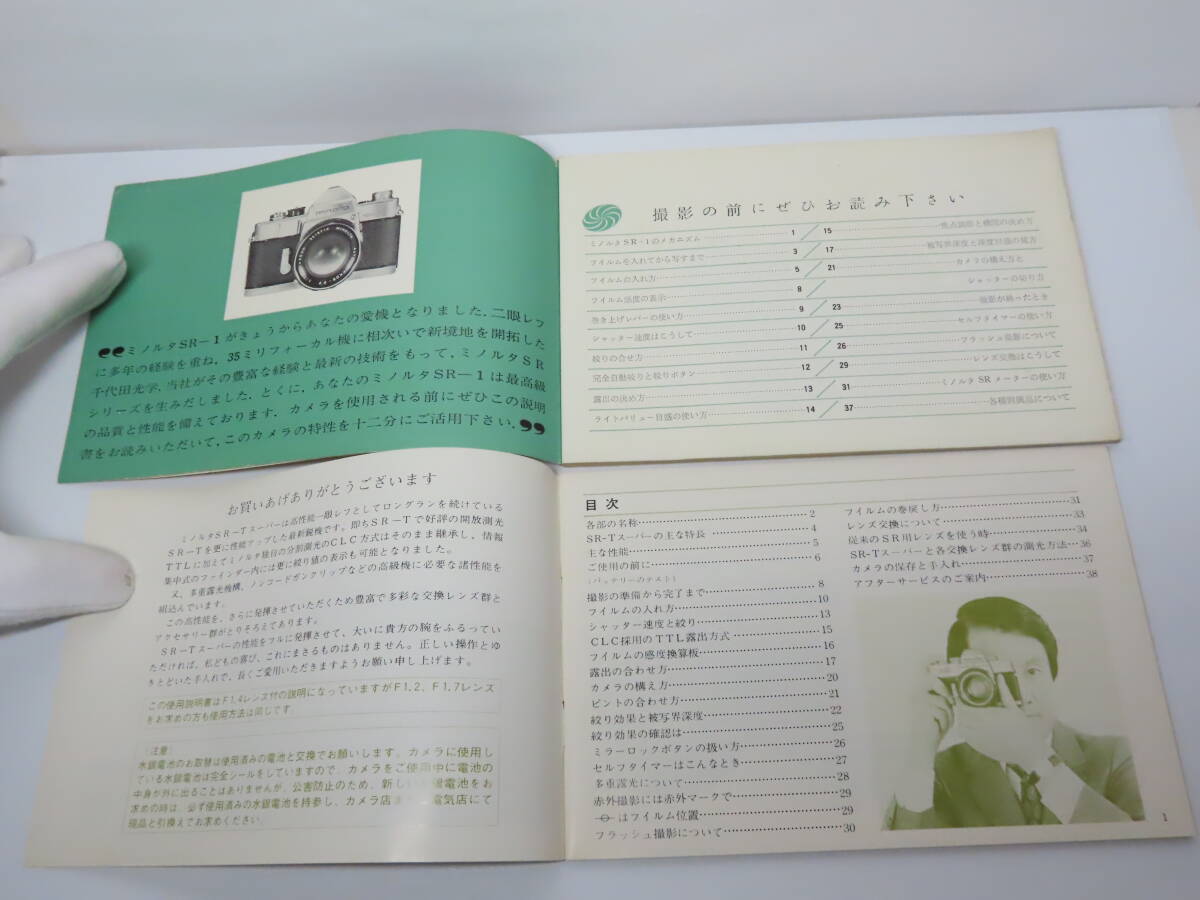 ❝ミノルタSR—1がきょうからあなたの愛機となりました．二眼レフ
に多年の経験を重ね，35ミリフォーカル機に相次いで新境地を開拓した
千代田光学，当社がその豊富な経験と最新の技術をもって，ミノルタSR
シリーズを生みだしました．とくに，あなたのミノルタSR—1は最高級
の品質と性能を備えております．カメラを使用される前にぜひこの説明
書をお読みいただいて，このカメラの特性を十二分にご活用下さい．❞
撮影の前にぜひお読み下さい
ミノルタSR-1のメカニズム 1
フイルムを入れてから写すまで 3
フイルムの入れ方 5
フイルム感度の表示 8
巻き上げレバーの使い方 9
シャッター速度はこうして 10
絞りの合せ方 11
完全自動絞りと絞りボタン 12
露出の決め方 13
ライトバリュー目盛の使い方 14
15 焦点調節と構図の決め方
17 被写界深度と深度目盛の見方
21 カメラの構え方と
シャッターの切り方
23 撮影が終ったとき
25 セルフタイマーの使い方
26 フラッシュ撮影について
29 レンズ交換はこうして
31 ミノルタSRメーターの使い方
37 各種附属品について
お買いあげありがとうございます
ミノルタSR—Tスーパーは高性能一眼レフとしてロングランを続けている
SR—Tを更に性能アップした最新鋭機です。即ちSR—Tで好評の開放測光
TTLに加えてミノルタ独自の分割測光のCLC方式はそのまま継承し、情報
集中式のファインダー内には更に絞り値の表示も可能となりました。
又、多重露光機構、ノンコードガンクリップなどの高級機に必要な諸性能を
組込んでいます。
この高性能を、さらに発揮させていただくため豊富で多彩な交換レンズ群と
アクセサリー群がとりそろえてあります。
SR—Tスーパーの性能をフルに発揮させて、大いに貴方の腕をふるってい
ただければ、私どもの喜び、これにまさるものはありません。正しい操作とゆ
きとどいた手入れで、長くご愛用いただきますようお願い申し上げます。
この使用説明書はF1.4レンズ付の説明になっていますがF1.2、F1.7レンズ
をお求めの方も使用方法は同じです。
〔注意〕
水銀電池のお取替は使用済みの電池と交換でお願いします。カメラに使用し
ている水銀電池は完全シールをしていますので、カメラをご使用中に電池の
中身が外に出ることはありませんが、公害防止のため、新しい水銀電池をお
求めの時は、必ず使用済みの水銀電池を持参し、カメラ店 電気店にて
現品と引換えでお求めください。
目次
各部の名称 2
SR-Tスーパーの主な特長 4
主な性能 5
ご使用の前に 6
(バッテリーのテスト)
撮影の準備から完了まで 8
フイルムの入れ方 10
シャッター速度と絞り 13
CLC採用のTTL露出方式 15
フイルムの感度換算板 16
露出の合わせ方 17
カメラの構え方 20
ピントの合わせ方 21
絞り効果と被写界深度 22
絞り効果の確認は 25
ミラーロックボタンの扱い方 26
セルフタイマーはこんなとき 27
多重露光について 28
赤外撮影には赤外マークで 29
はフイルム位置 29
フラッシュ撮影について 30
フイルムの巻戻し方 31
レンズ交換について 33
従来のSR用レンズを使う時 34
SR-Tスーパーと各交換レンズ群の測光方法 36
カメラの保存と手入れ 37
アフターサービスのご案内 38
1